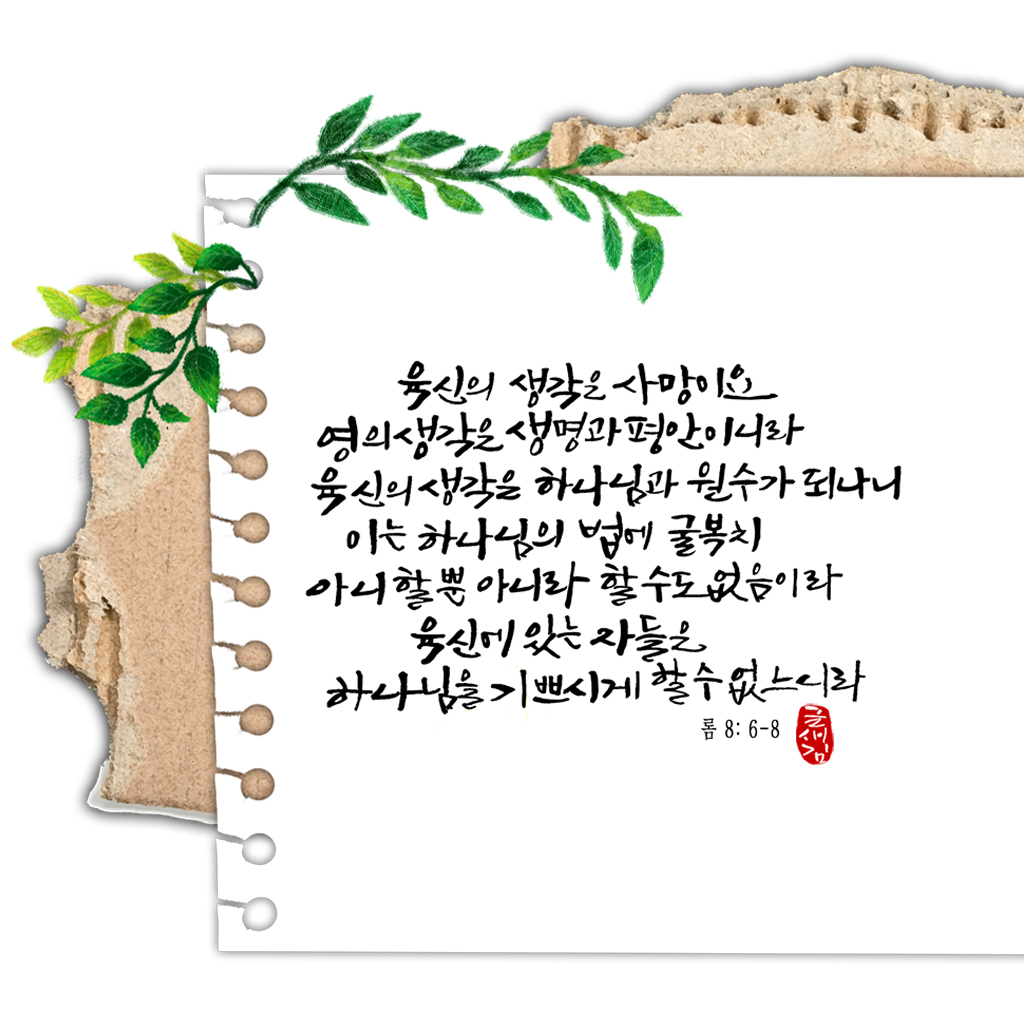 육신의 생각은 사망이요
영의생각은 생명과 평안이니라
육신의 생각은 하나님과 원수가 되나니
이는 하나님의 법에 굴복치
아니할뿐 아니라 할수도없음이라
육신에 있는 자들은
하나님을 기쁘시게 할수없느니라
롬 8: 6-8
글새김